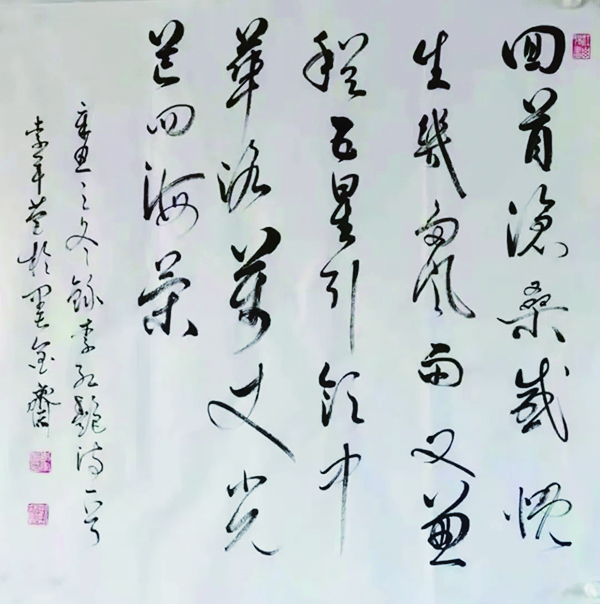 回首滄桑感慨
生幾多風雨又兼
程五星引領中
華路萬丈光
芒四海榮
辛丑之冬錄李紅艷詩一首
李平於墨齋